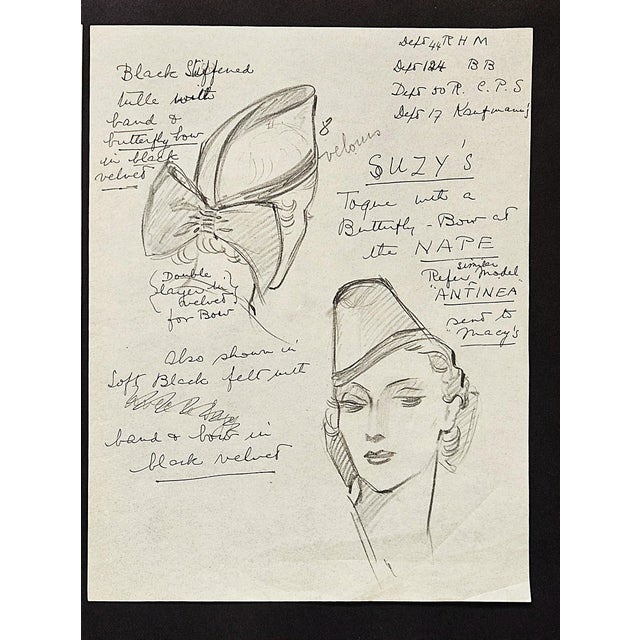 Dept 44 R H M
Dept 124 B B
Dept 50 R. C. P. S
Dept 17 Kaufmann's
Black Stiffened
tulle with
band &
butterfly bow
in black
velvet
8
velours
SUZY'S
Toque with a
Butterfly - Bow at
the NAPE
similar
Refer Model
"ANTINEA"
sent to
"Macy's
Double
layer in
velvet
for Bow
Also shown in
Soft Black felt with
band & bow in
black velvet